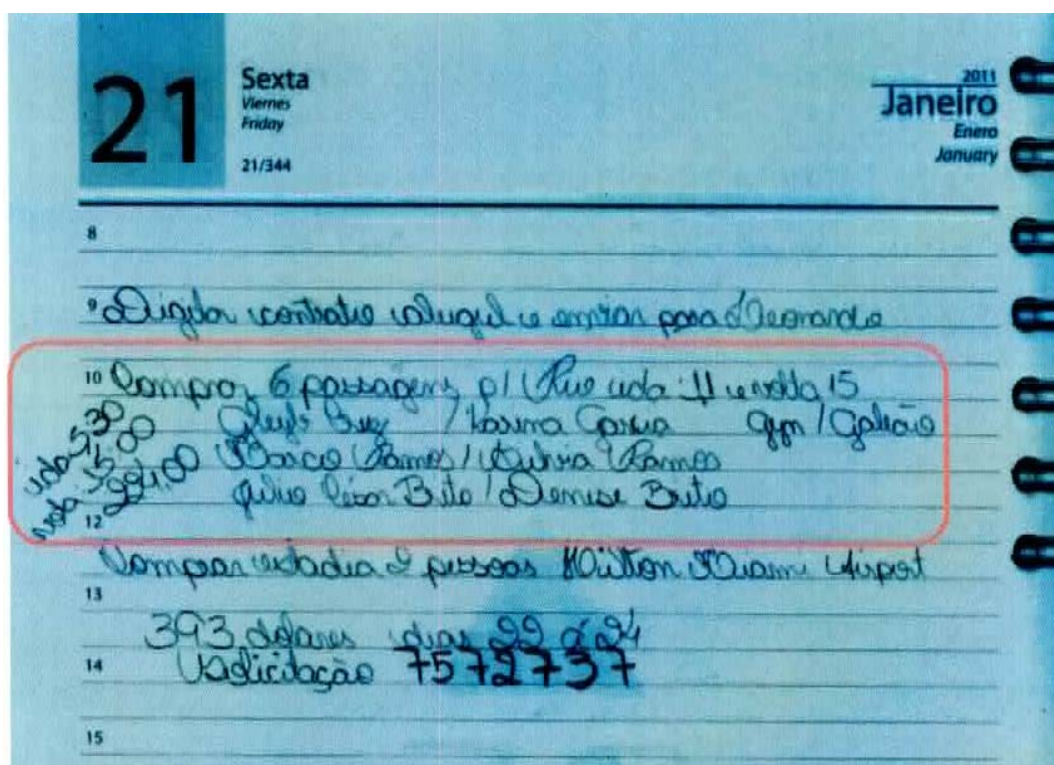 21
Sexta
Viernes
Friday
21/344
2011
Janeiro
Enero
January
8
9 Digitar contrato aluguel e enviar para Leonardo
10 Comprar 6 passagens p/ Rio ida 11 e volta 15
Gleyb Cruz / Karina Garcia Gyn / Galeão
Marco Ramos / Silvia Ramos
Julio César Brito / Denise Brito
ida 5:30
volta: 15:00
224,00
12
Comprar estadia 2 pessoas Hilton Miami Airport
13
393 dolares dias 22 á 24
14 Solicitação 7572737
15